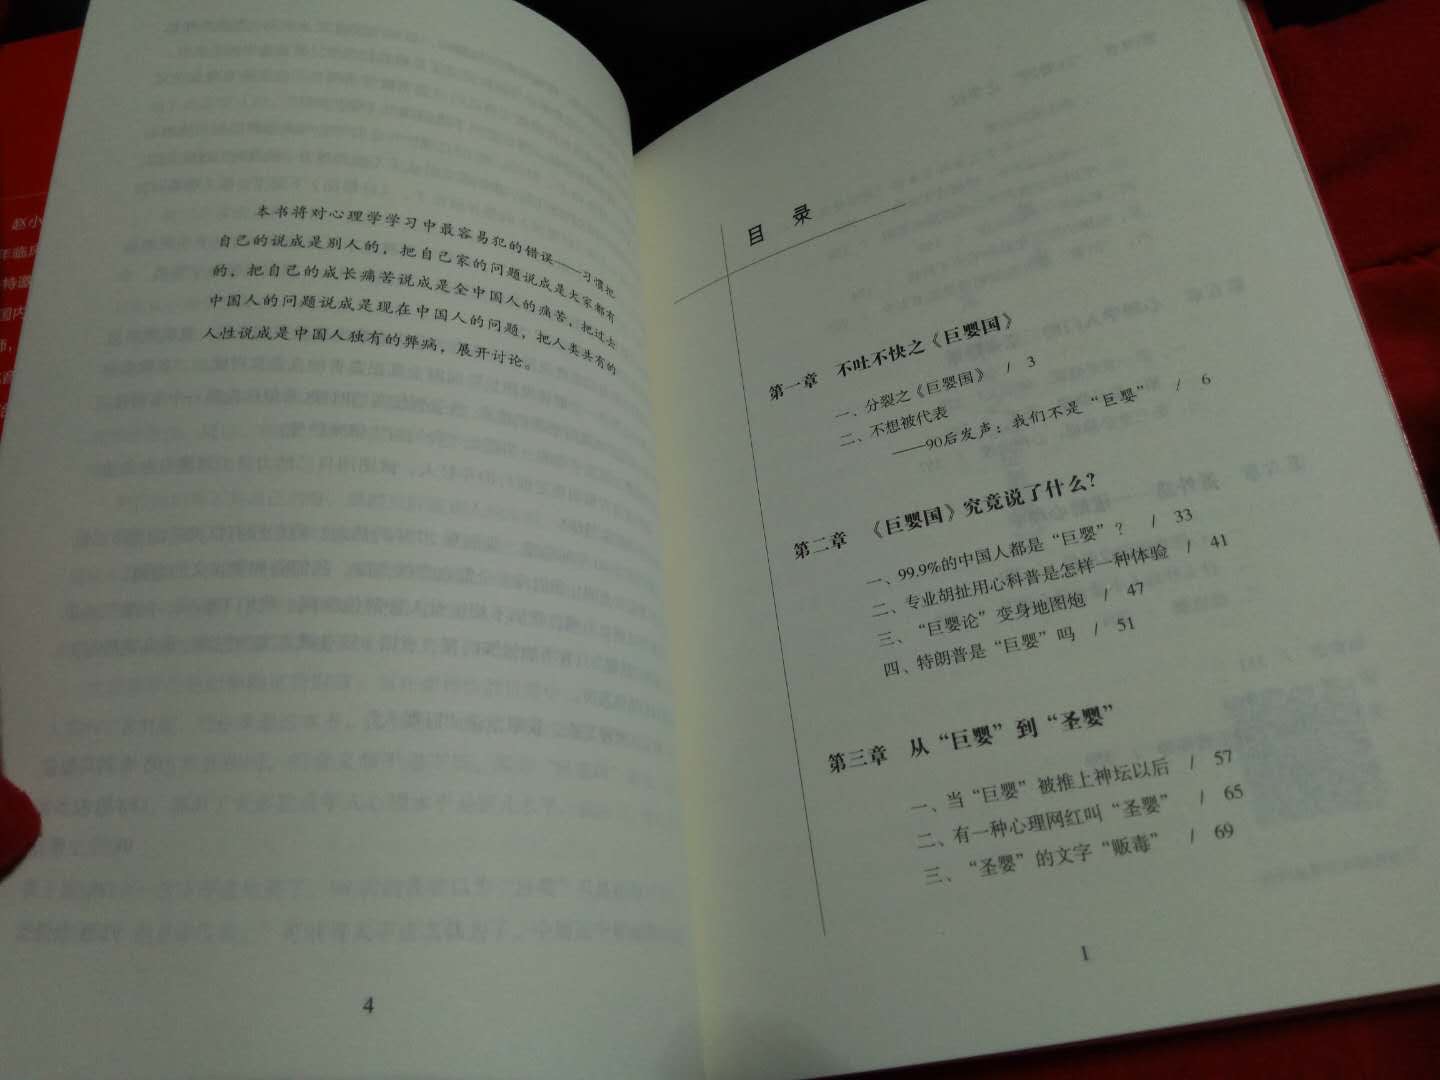 赵小
年临床
特邀
国内
师，
本书将对心理学学习中最容易犯的错误——习惯把
自己的说成是别人的，把自己家的问题说成是大家都有
的，把自己的成长痛苦说成是全中国人的痛苦，把过去
中国人的问题说成是现在中国人的问题，把人类共有的
人性说成是中国人独有的弊病，展开讨论。
4
目 录
第一章 不吐不快之《巨婴国》
一、分裂之《巨婴国》 / 3
二、不想被代表
——90后发声：我们不是“巨婴” / 6
第二章 《巨婴国》究竟说了什么？
一、99.9%的中国人都是“巨婴”？ / 33
二、专业胡扯用心科普是怎样一种体验 / 41
三、“巨婴论”变身地图炮 / 47
四、特朗普是“巨婴”吗 / 51
第三章 从“巨婴”到“圣婴”
一、当“巨婴”被推上神坛以后 / 57
二、有一种心理网红叫“圣婴” / 65
三、“圣婴”的文字“贩毒” / 69
I